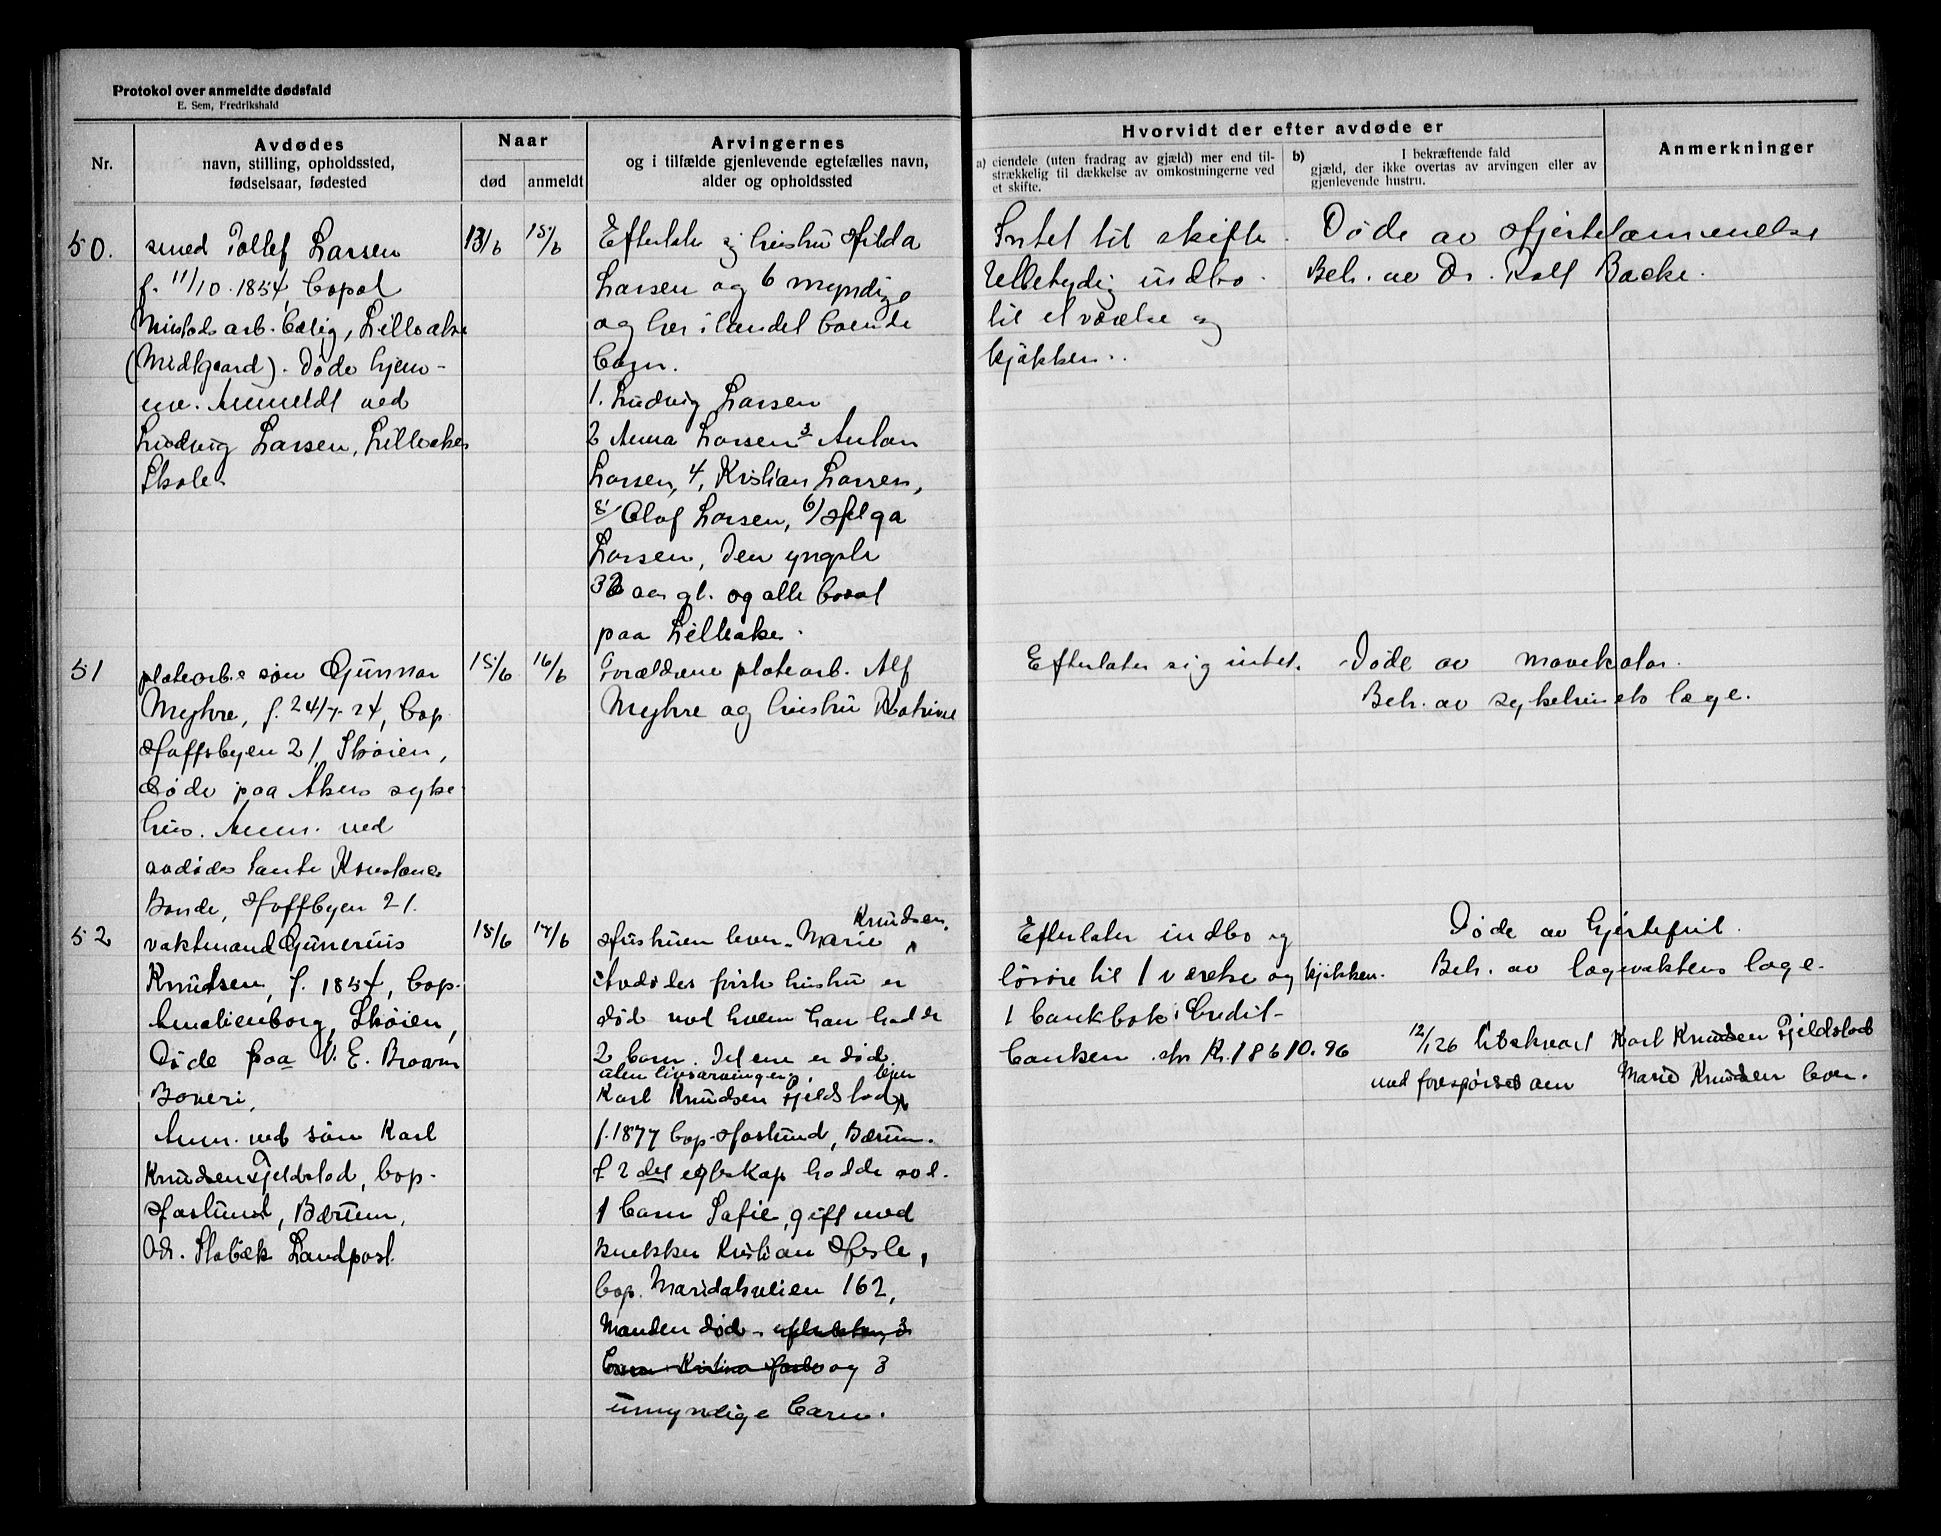 Protokol over anmeldte dødsfald
E. Sem, Fredrikshald
Nr.
Avdødes
navn, stilling, opholdssted,
fødselsaar, fødested
Naar
død
anmeldt
Arvingernes
og i tilfælde gjenlevende egtefælles navn,
alder og opholdssted
Hvorvidt der efter avdøde er
a) eiendele (uten fradrag av gjæld) mer end til-
strækkelig til dækkelse av omkostningerne ved
et skifte.
b) I bekræftende fald
gjæld, der ikke overtas av arvingen eller av
gjenlevende hustru.
Anmerkninger
50.
smed Tollef Larsen
f. 11/10. 1854, bopat
Mustads arb. bolig, Lilleaker
(Midtgaard). Døde hjem-
me. Anmeldt ved
Ludvig Larsen, Lilleaker
Skole
13/6
15/6
Efterlater sig hustru Hilda
Larsen og 6 myndige
og her i landet boende
barn.
1. Ludvig Larsen
2 Anna Larsen 3 Anton
Larsen, 4, Kristian Larsen,
5/ Olaf Larsen, 6/ Helga
Larsen, den yngste
32 aar gl. og alle bosat
paa Lilleaker.
Intet til skifte.
Ubetydelig indbo
til et værelse og
kjøkken.
Døde av Hjertelammelse
Beh. av Dr. Ralf Backe.
51
platearb.s søn Gunnar
Myhre, f. 24/7-24, bop
Hoffsbyen 21, Skøien,
døde paa Akers syke-
hus. Anm. ved
avdødes tante Konstance
Bonde, Hoffbyen 21.
15/6
16/6
Forældrene platearb. Alf
Myhre og hustru Katrine
Efterlater sig intet.
Døde av mavekatar.
Beh. av sykehusets læge.
52
vaktmand Gunerius
Knudsen, f. 1854, bop.
Amalienborg, Skøien,
Døde paa V. E. Brown
Boveri,
Anm. ved søn Karl
Knudsen Fjeldstad, bop.
Haslund, Bærum,
Adr. Stabæk Landpost
15/6
17/6
Hustruen lever. Marie Knudsen.
Avdødes første hustru er
død med hvem han hadde
2 barn. Det ene er død
uten livsarvinger, lever
Karl Knudsen Fjeldstad,
f. 1877 bop. Haslund, Bærum.
I 2det egteskap hadde avd.
1 barn Sofie, gift med
snekker Kristian Hesle,
bop. Maridalsveien 162,
Manden død. efterlater 3
barn Kristian Hesle og 3
umyndige barn.
Efterlater indbo og
løsøre til 1 værelse og kjøkken.
1 bankbok i Credit-
banken. stor Kr. 18610.96
Døde av hjertefeil.
Beh. av lægevaktens læge.
12/1 26 Utskrevet Karl Knudsen Fjeldstad
med forespørsel om Marie Knudsen lever.